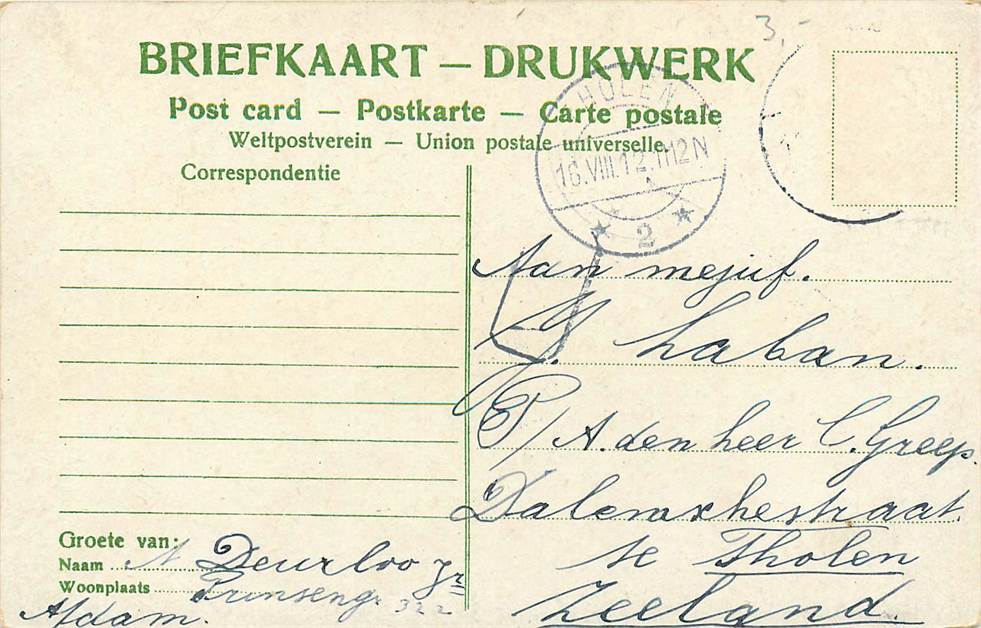 3,-
BRIEFKAART — DRUKWERK
Post card — Postkarte — Carte postale
Weltpostverein — Union postale universelle.
Correspondentie
HOLEN
16.VIII.12.11-12N
2
Aan mejuf.
J. Laban.
P/A. den heer C. Greep.
Dalemschestraat
te Tholen
Zeeland.
Groete van:
Naam A Deurloo Jr
Woonplaats Prinsengr 322
A/dam.